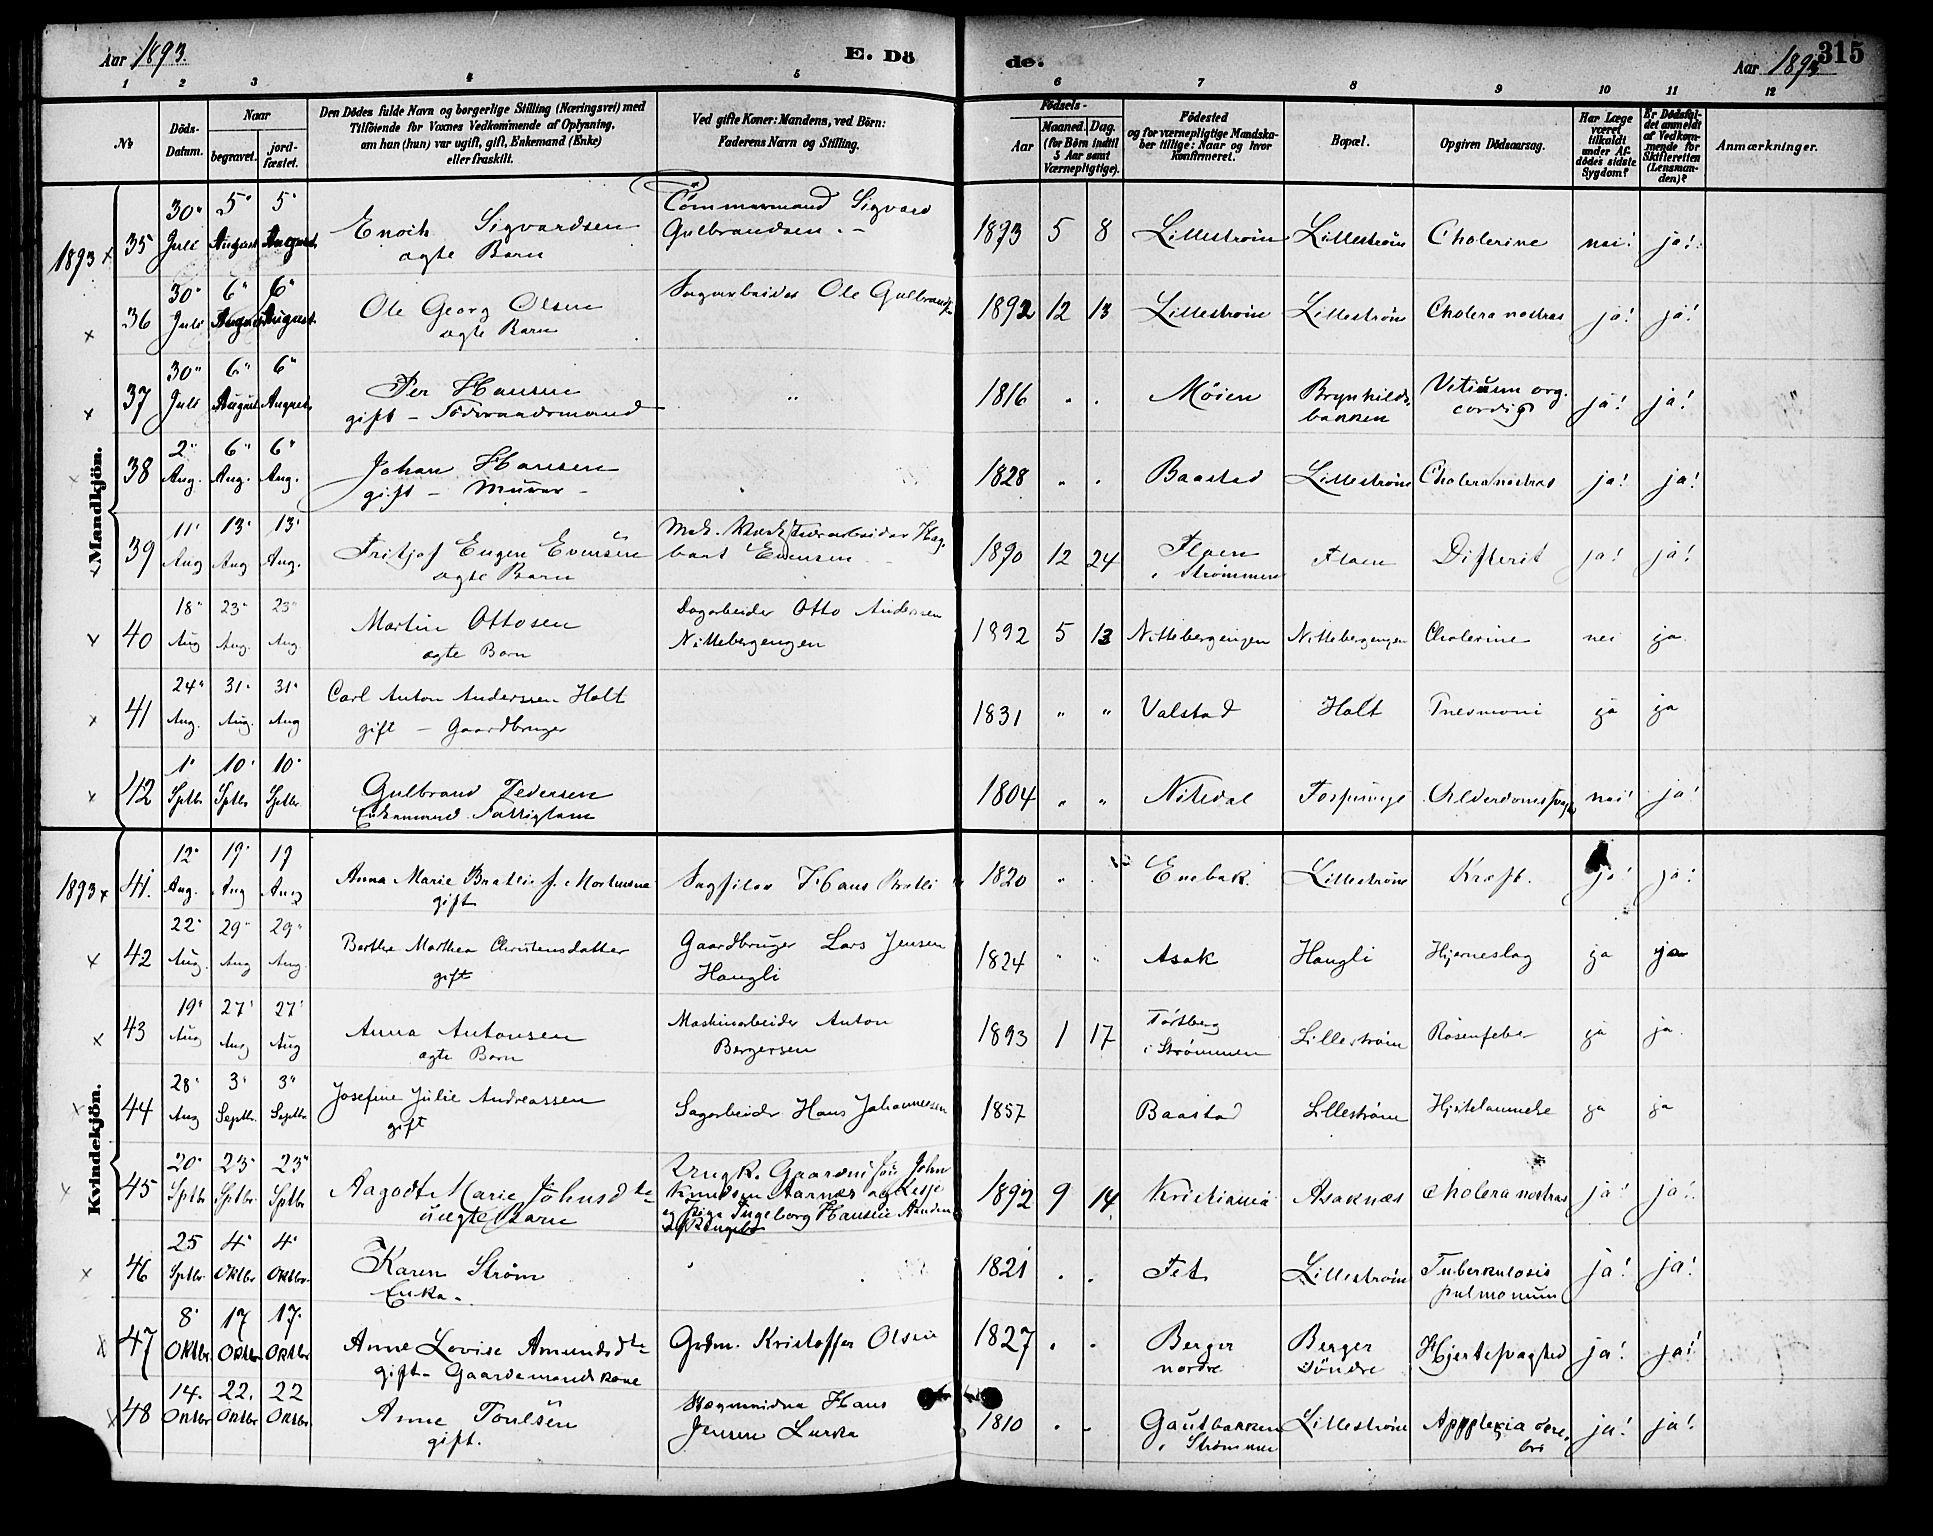 Aar 1893. E. Dö
de. Aar 1893 315
1 2 3 4 5 6 7 8 9 10 11 12
№
Döds-Datum.
Naar
begravet.
jordfæstet.
Den Dödes fulde Navn og borgerlige Stilling (Næringsvei) med
Tilföiende for Voxnes Vedkommende af Oplysning.
om han (hun) var ugift, gift, Enkemand (Enke)
eller fraskilt.
Ved gifte Koner: Mandens, ved Börn:
Faderens Navn og Stilling.
Födsels-
Aar
Maaned. Dag.
(for Börn indtil
5 Aar samt
Værnepligtige).
Födested
og for værnepligtige Mandska-
ber tillige: Naar og hvor
Konfirmeret.
Bopæl.
Opgiven Dödsaarsag.
Har Læge
været
tilkaldt
under Af-
dödes sidste
Sygdom?
Er Dödsfal-
det anmeldt
af Vedkom-
mende for
Skifteretten
(Lensman-
den)?
Anmærkninger.
Mandkjön.
1893 x 35 30" Juli 5" August 5" August. Enoch Sigvardsen ægte Barn Tömmermand Sigvard Gulbrandsen. - 1893 5 8 Lillestrøm Lillestrøm Cholerine nei! ja!
x 36 30" Juli 6" August 6" August. Ole Georg Olsen ægte Barn Sagarbeider Ole Gulbrands. 1892 12 13 Lillestrøm Lillestrøm Cholera nostras ja! ja!
x 37 30" Juli 6" August 6" August. Per Hansen gift - Föderaadsmand " 1816 " " Möien Brynhilds-bakken Vitium org. cordis ja! ja!
38 2" Aug. 6" Aug. 6" Aug. Johan Hansen gift - Murer - 1828 " " Baastad Lillestrøm Cholera nostras ja! ja!
x 39 11' Aug 13' Aug 13' Aug. Fritjof Eugen Evensen ægte Barn Mek. Værkstedarbeider Hag-bart Evensen 1890 12 24 Flaen i Strømmen Flaen Difterit ja! ja!
x 40 18" Aug 23" Aug. 23" Aug Martin Ottosen ægte Barn Dagarbeider Otto Anderssen Nittebergengen 1892 5 13 Nittebergengen Nittebergengen Cholerine nei ja
x 41 24" Aug. 31' Aug. 31' Aug Carl Anton Anderssen Holt gift - Gaardbruger 1831 " " Valstad Holt Pnevmoni ja ja
x 42 1' Sptb 10' Sptbr 10' Sptbr. Gulbrand Pedersen Enkemand Fattiglem 1804 " " Nitedal Alderdomssvag. nei! ja!
Kvindekjön.
1893 x 41. 12" Aug. 19' Aug 19 Aug Anna Marie Bratlie f. Mortensen gift Sagfiler Hans Bratli 1820 " Enebak. Lillestrøm Kræft. ja! ja!
x 42 22' Aug. 29" Aug 29" Aug. Berthe Marthea Christensdatter gift Gaardbruger Lars Jensen Haugli 1824 " " Asak Haugli Hjerneslag ja ja
x 43 19' Aug 27' Aug 27' Aug Anna Antonsen ægte Barn Maskinarbeider Anton Bergersen 1893 1 17 i Strømmen Lillestrøm Rosenfeber ja ja
x 44 28' Aug 3' Septb. 3" Septbr Josefine Julie Andreassen gift Sagarbeider Hans Johannessen 1857 Baastad Lillestrøm Hjertelammelse ja ja
x 45 20" Sptbr 23' Sptbr. 23" Sptbr Aagodt Marie Johnsdtr uægte Barn Ungk. John Knudsen Aarnæs og Pige Ingeborg Hansen 1892 9 14 Kristiania Asaknæs Cholera nostras ja! ja!
x 46 25 Sptbr. 4' Oktbr 4' Oktbr. Karen Strøm Enke. " 1821 . . Fet Lillestrøm Tuberkulosis pulmonum ja! ja!
x 47 8' Oktbr 17 Oktbr 17. Oktbr Anne Lovise Amundsdtr gift - Gaardmandskone Grdm. Kristoffer Olsen 1827 . . Berger nordre Berger söndre Hjertesvaghed ja! ja!
x 48 14. Oktbr 22. Oktbr 22 Oktbr. Anne Poulsen gift. Hans Jensen 1810 . . Gautbakken i Strømmen Lillestrøm Apoplexia cere-bri ja! ja!